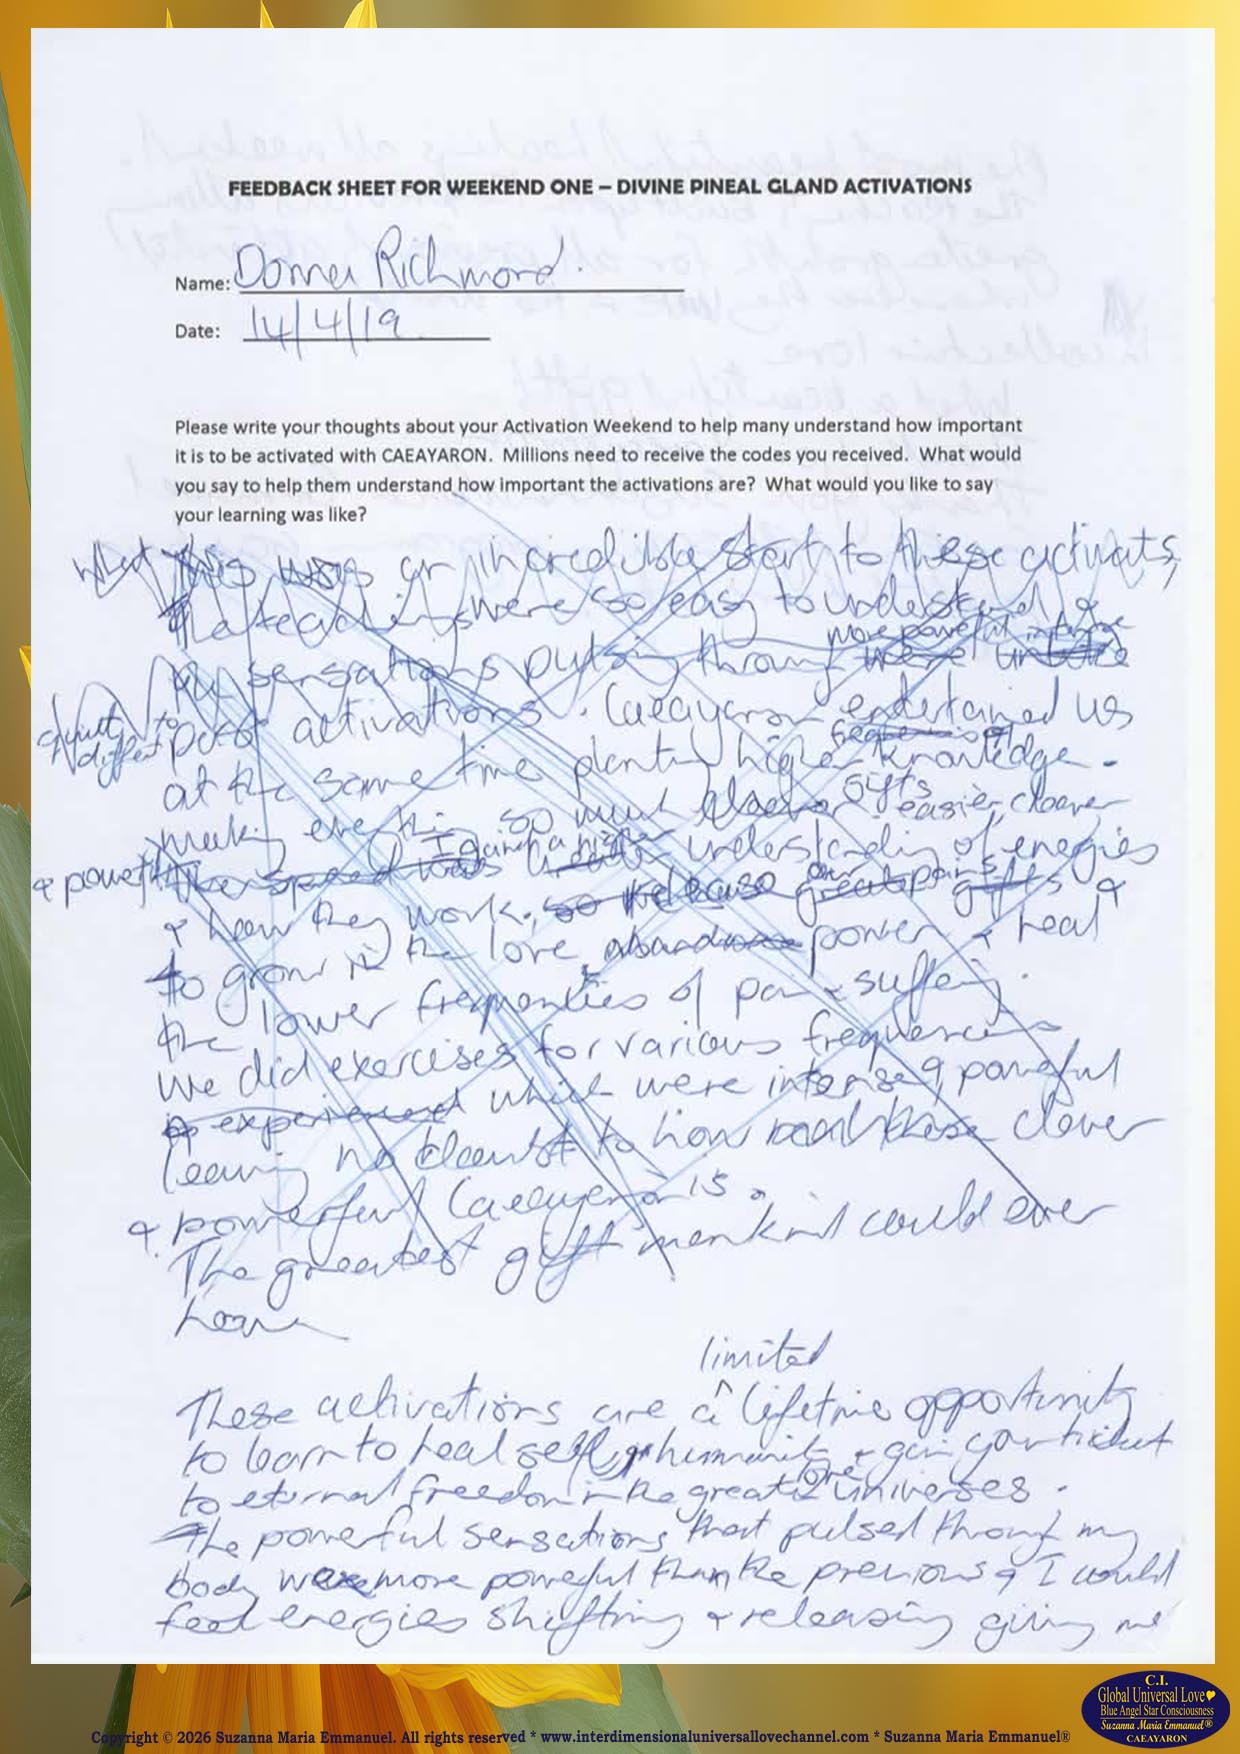 FEEDBACK SHEET FOR WEEKEND ONE – DIVINE PINEAL GLAND ACTIVATIONS
Name: Donna Richmond.
Date: 14/4/19
Please write your thoughts about your Activation Weekend to help many understand how important
it is to be activated with CAEAYARON. Millions need to receive the codes you received. What would
you say to help them understand how important the activations are? What would you like to say
your learning was like?
What this was an incredible start to these activats,
The teachings were so easy to understand &
more powerful intense
My sensations pulsing through were
quiet different to past activations. Caeayaron entertained us
at the same time planting higher knowledge.
Gifts
making everything so much easier, clearer
& powerful I gain a higher understanding of energies
& how they work, so release our great gifts &
to grow in the love power & heal
the lower frequenties of pain & suffering.
We did exercises for various frequencies
experienced which were intense & powerful
leaving no doubt to how clever
& powerful Caeayaron is.
The greatest gift mankind could ever
have
limited
These activations are a ^ lifetime opportunity
to learn to heal self, humanity & gain your ticket
to eternal freedom in the greater universes.
The powerful sensations that pulsed through my
body were more powerful than the previous & I could
feel energies shifting & releasing giving me
C.I.
Global Universal Love
Blue Angel Star Consciousness
Suzanna Maria Emmanuel®
CAEAYARON
Copyright © 2026 Suzanna Maria Emmanuel. All rights reserved * www.interdimensionaluniversallovechannel.com * Suzanna Maria Emmanuel®